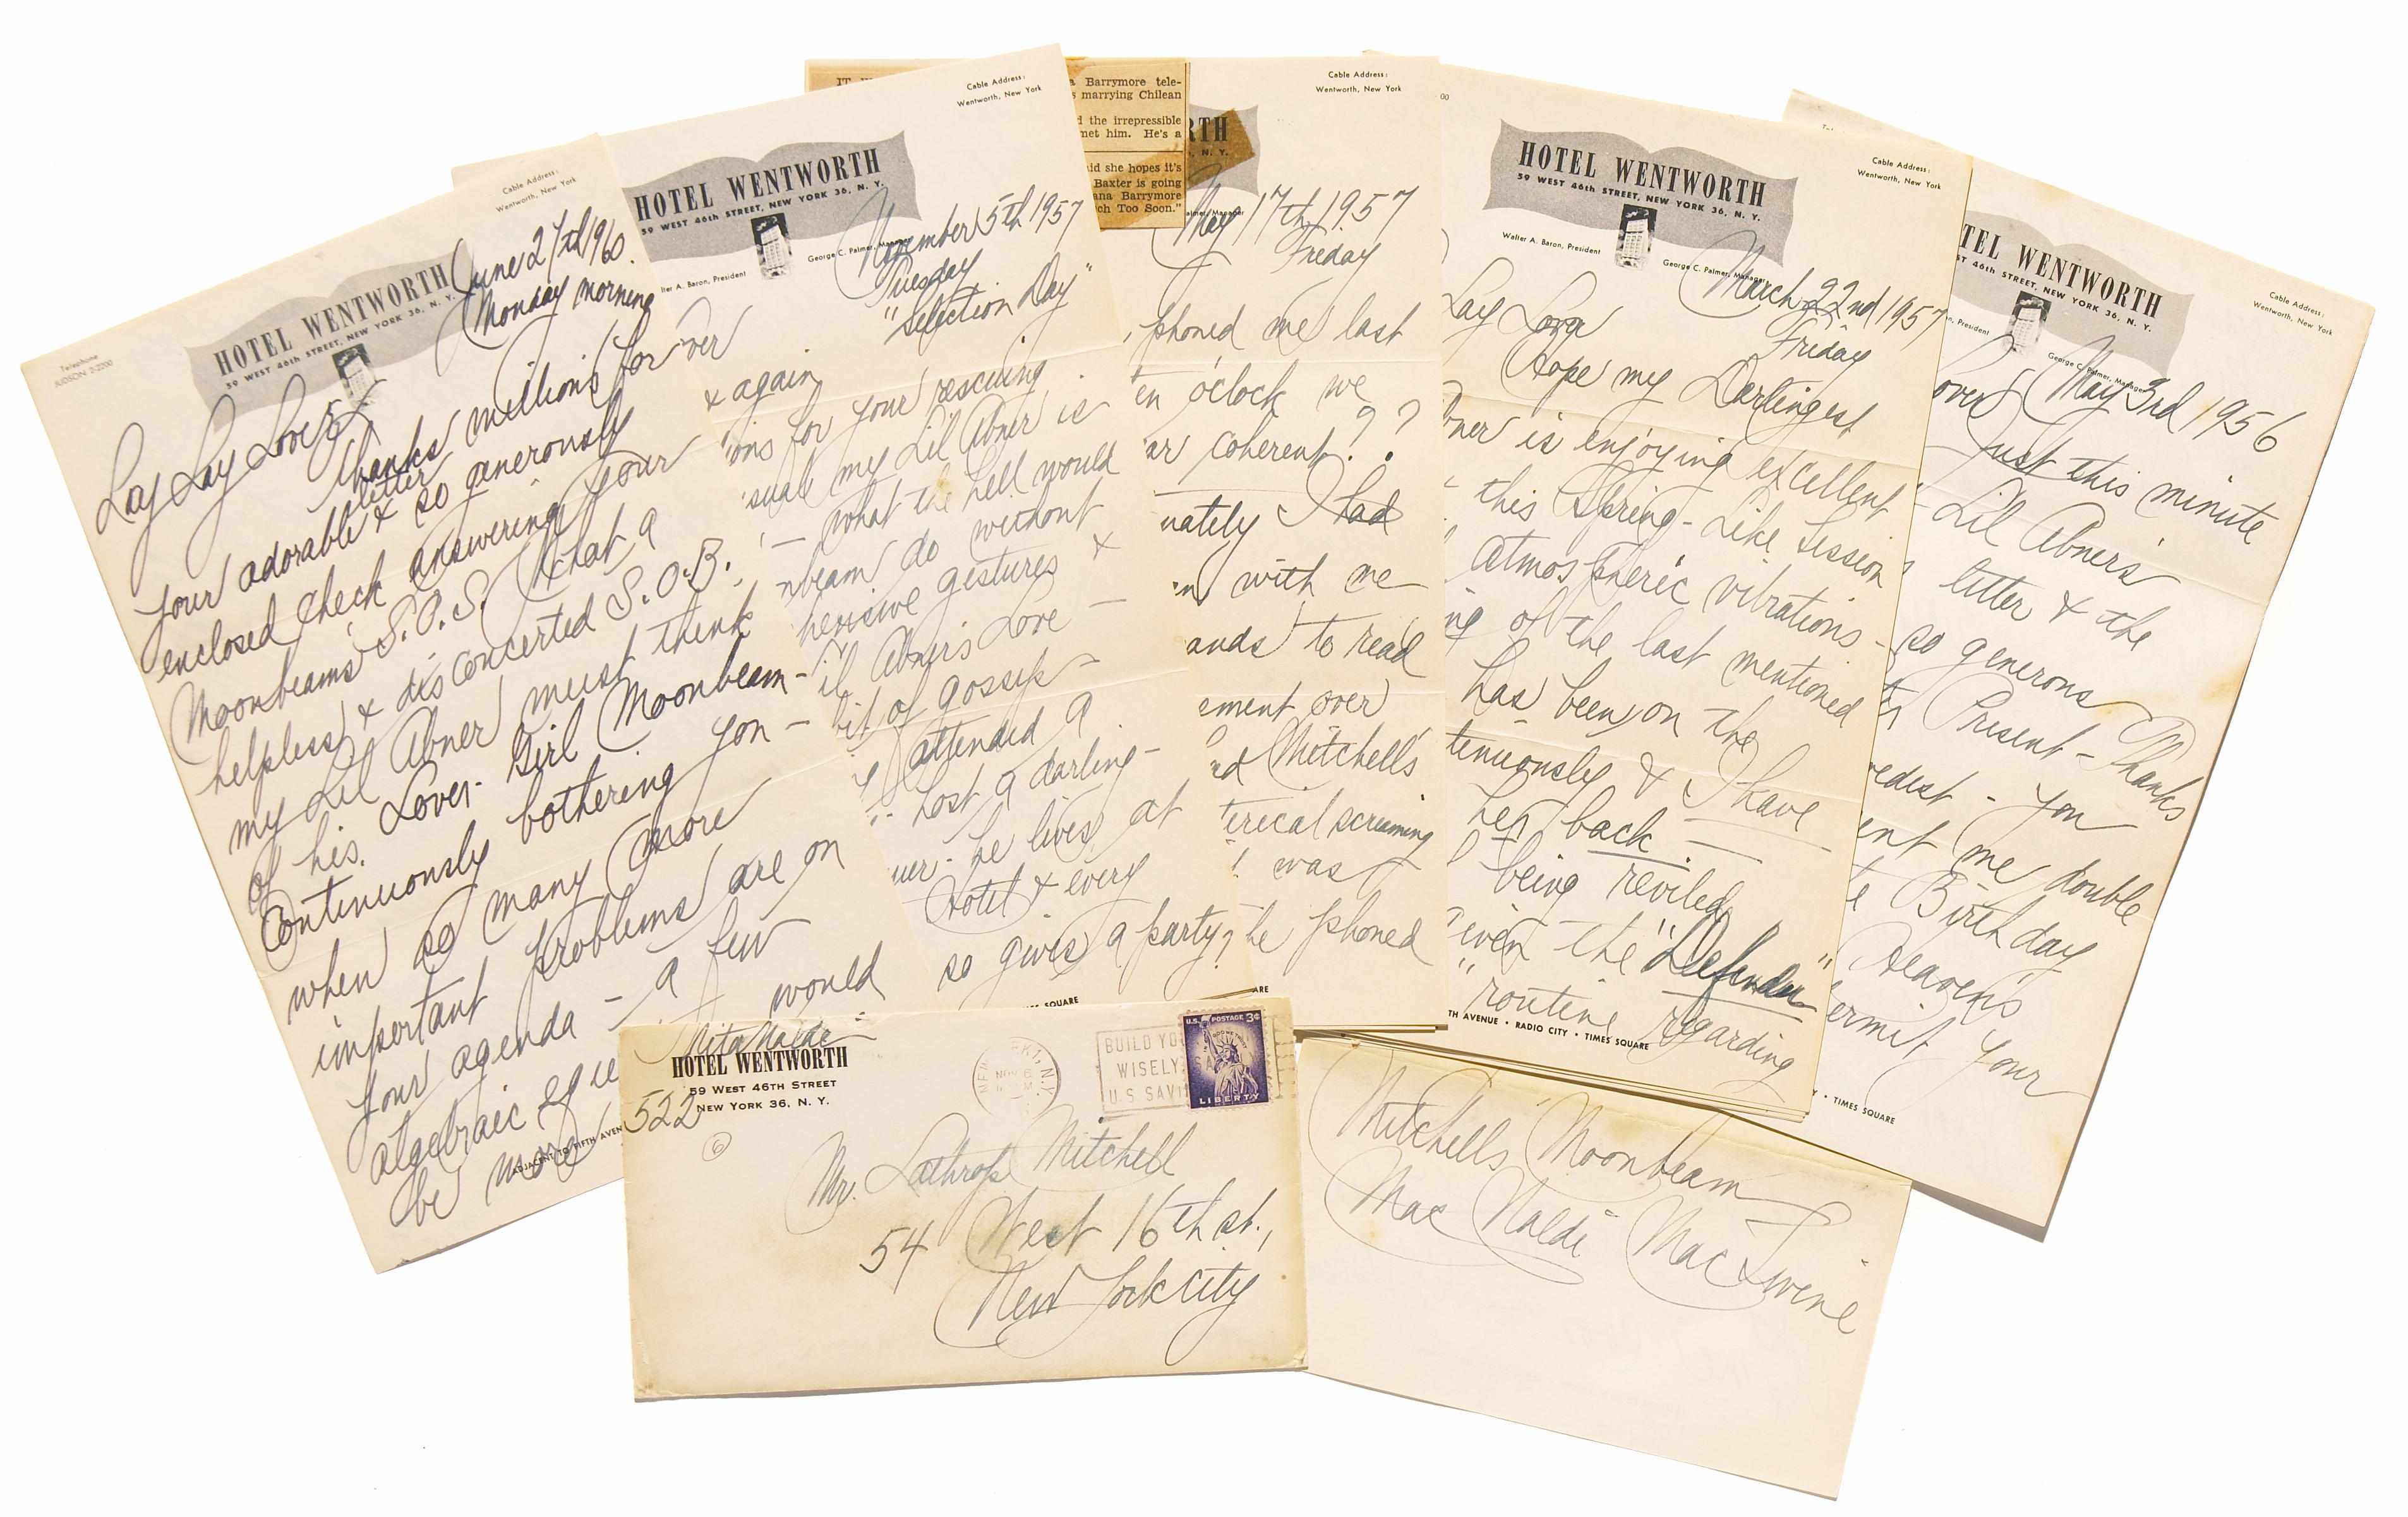 Telephone
JUdson 2-2200
Cable Address:
Wentworth, New York
HOTEL WENTWORTH
59 WEST 46th STREET, NEW YORK 36, N. Y.
June 27th 1960.
Monday morning
Lay Lay Lover
thanks millions for
your adorable letter & so generously
enclosed check answering your
Moonbeam's S.O.S. What a
helpless & disconcerted S.O.B.
my Lil Abner must think
of his Lover-Girl Moonbeam-
Continuously bothering you -
when so many more
important problems are on
your agenda - a few
algebraic would
be more
ADJACENT TO FIFTH AVEN
Cable Address:
Wentworth, New York
HOTEL WENTWORTH
59 WEST 46th STREET, NEW YORK 36, N. Y.
ter A. Baron, President
George C. Palmer, Manager
November 5th 1957
Tuesday
"Election Day"
ver
& again
ions for your rescuing
my Lil Abner is
- what the hell would
nbeam do without
hensive gestures &
il Abner's Love -
bit of gossip -
attended a
Host a darling -
he lives at
Hotel & every
so gives a party,
MES SQUARE
IT
a Barrymore tele-
s marrying Chilean
d the irrepressible
met him. He's a
id she hopes it's
Baxter is going
ana Barrymore
ch Too Soon."
Cable Address:
Wentworth, New York
RTH
, N. Y.
almer, Manager
May 17th 1957
Friday
phoned me last
en o'clock we
ar coherent??
nately I had
en with me
ands to read
ement over
nd Mitchell's
terical screaming
! was
he phoned
ARE
Cable Address:
Wentworth, New York
HOTEL WENTWORTH
59 WEST 46th STREET, NEW YORK 36, N. Y.
Walter A. Baron, President
George C. Palmer, Manager
March 22nd 1957
Friday
Lay Lova
Hope my Darlingest
bner is enjoying excellent
this Spring-Like Session
atmospheric vibrations -
ng of the last mentioned
has been on the
tinuously & I have
her back.
being reviled
even the "Defender"
"routine regarding
TH AVENUE • RADIO CITY • TIMES SQUARE
Cable Address:
Wentworth, New York
TEL WENTWORTH
ST 46th STREET, NEW YORK 36, N. Y.
n, President
George C. Palmer, Manager
May 3rd 1956
over
Just this minute
Lil Abner's
letter & the
so generous
Present - Thanks
edest - you
ent me double
Birthday
Heavens
ermit your
Y • TIMES SQUARE
Nita Naldi
HOTEL WENTWORTH
59 WEST 46TH STREET
NEW YORK 36, N. Y.
522
6
NEW YORK 1, N.Y.
NOV 6
BUILD YO
WISELY
U S SAVI
U.S. POSTAGE 3¢
LIBERTY
Mr. Lathrop Mitchell
54 West 16th st.,
New York City
Mitchells Moonbeam
Mac Naldi Mac Swine